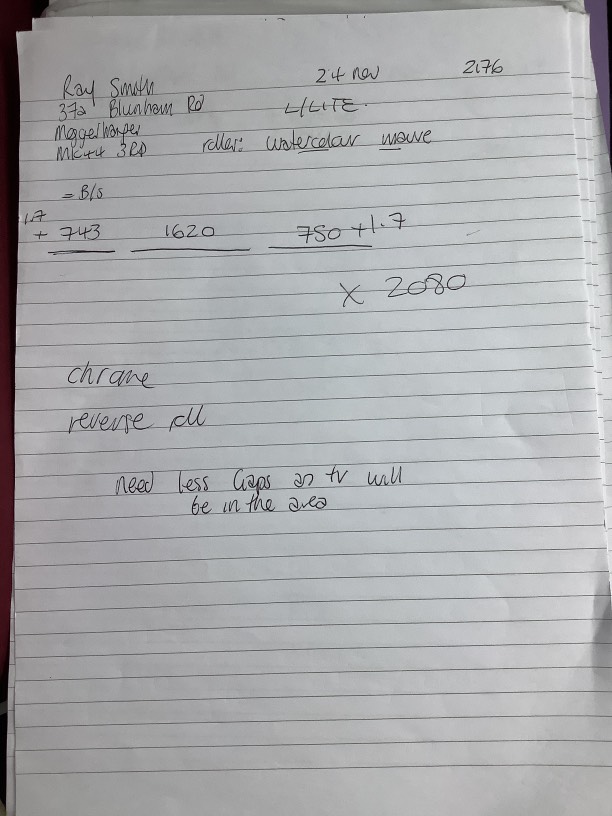 Ray Smith 24 nov 2176
37a Blunham Rd L/LITE.
Moggerhanger
MK44 3RD roller: watercolour mauve
= B/S
1.7
+ 743 1620 750 +1.7
X 2080
chrome
reverse roll
need less Gaps as tv will
be in the area